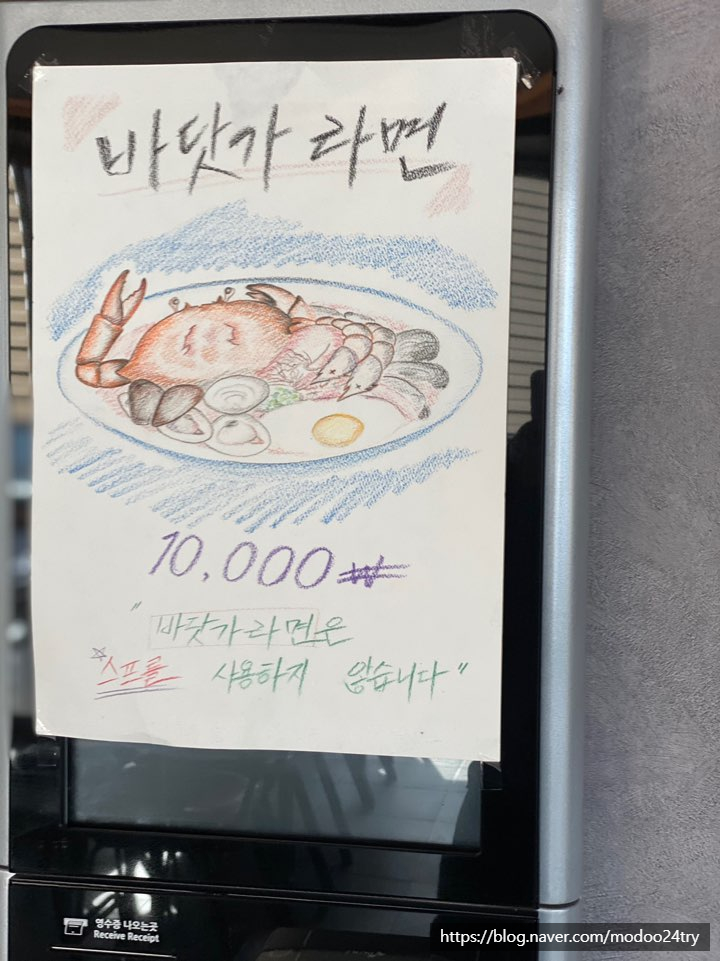 바닷가 라면
10,000₩
"바닷가라면은
☆스프를 사용하지 않습니다"
영수증 나오는곳
Receive Receipt
https://blog.naver.com/modoo24try